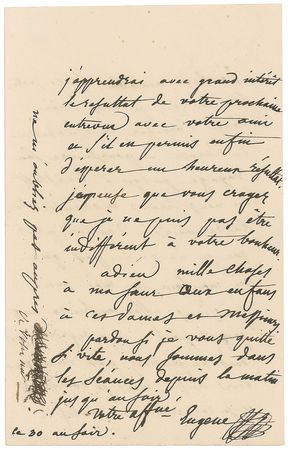 j'apprendrai avec grand intérêt
le resultat de votre prochaine
entrevue avec votre ami
et s'il est permis enfin
d'espérer un heureux résultat.
que vous croyez
que je ne puis pas être
indifférent à votre bonheur
adieu mille choses
à ma sœur aux enfans
à ces dames et messieurs
pardon si je vous quitte
si vite nous sommes dans
les séances depuis le matin
jusqu'au soir
votre affné Eugene
Ce 30 au soir.
ne m'oubliez pas auprès